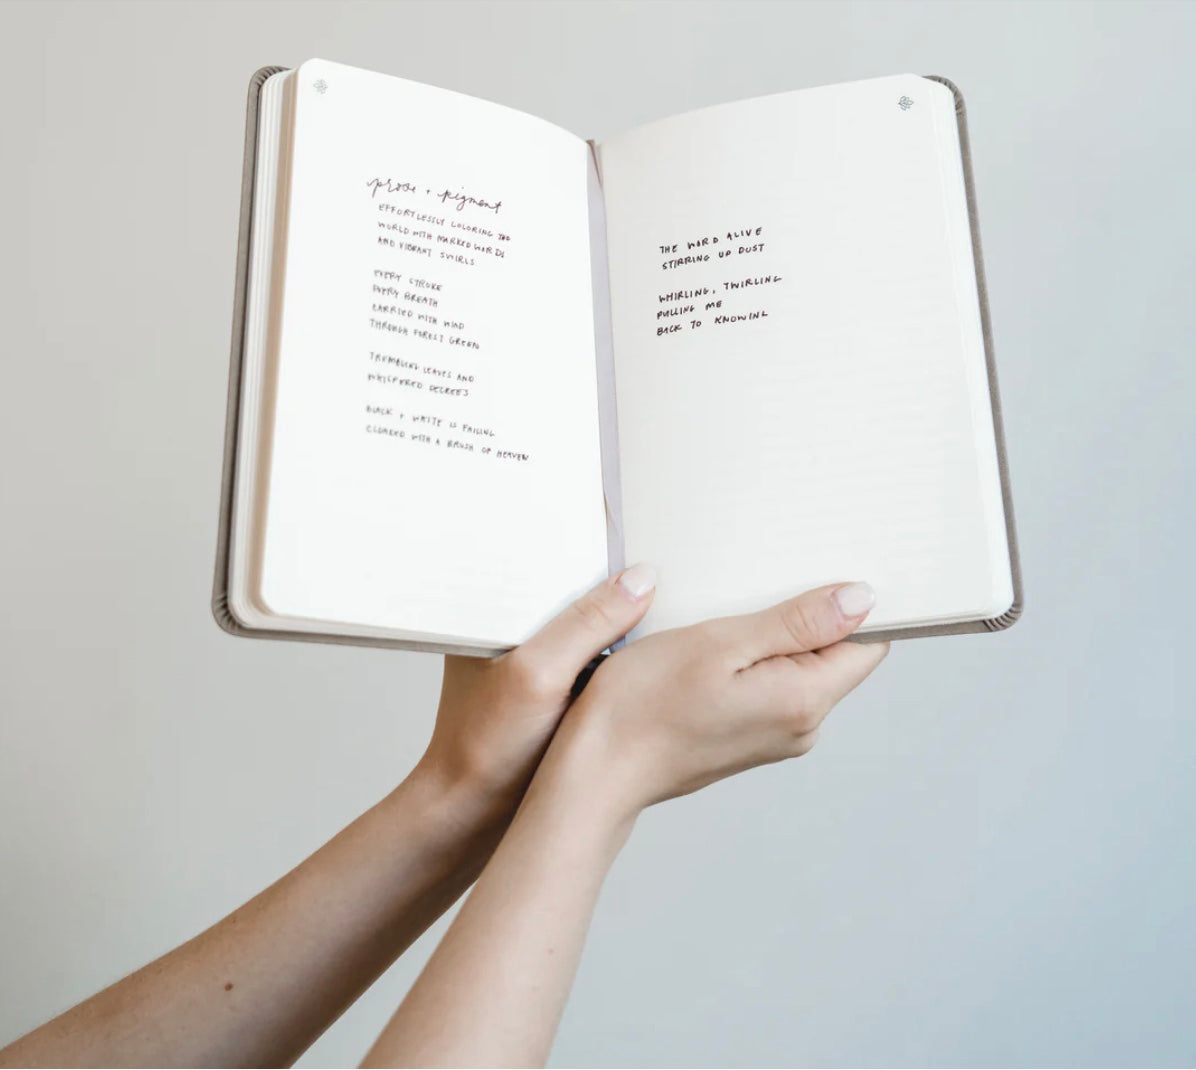 prose + pigment
EFFORTLESSLY COLORING THE
WORLD WITH MARKED WORDS
AND VIBRANT SWIRLS
EVERY STROKE
EVERY BREATH
CARRIED WITH WIND
THROUGH FOREST GREEN
TREMBLING LEAVES AND
WHISPERED DECREES
BLACK + WHITE IS FALLING
CLOAKED WITH A BRUSH OF HEAVEN
THE WORD ALIVE
STIRRING UP DUST
WHIRLING, TWIRLING
PULLING ME
BACK TO KNOWING